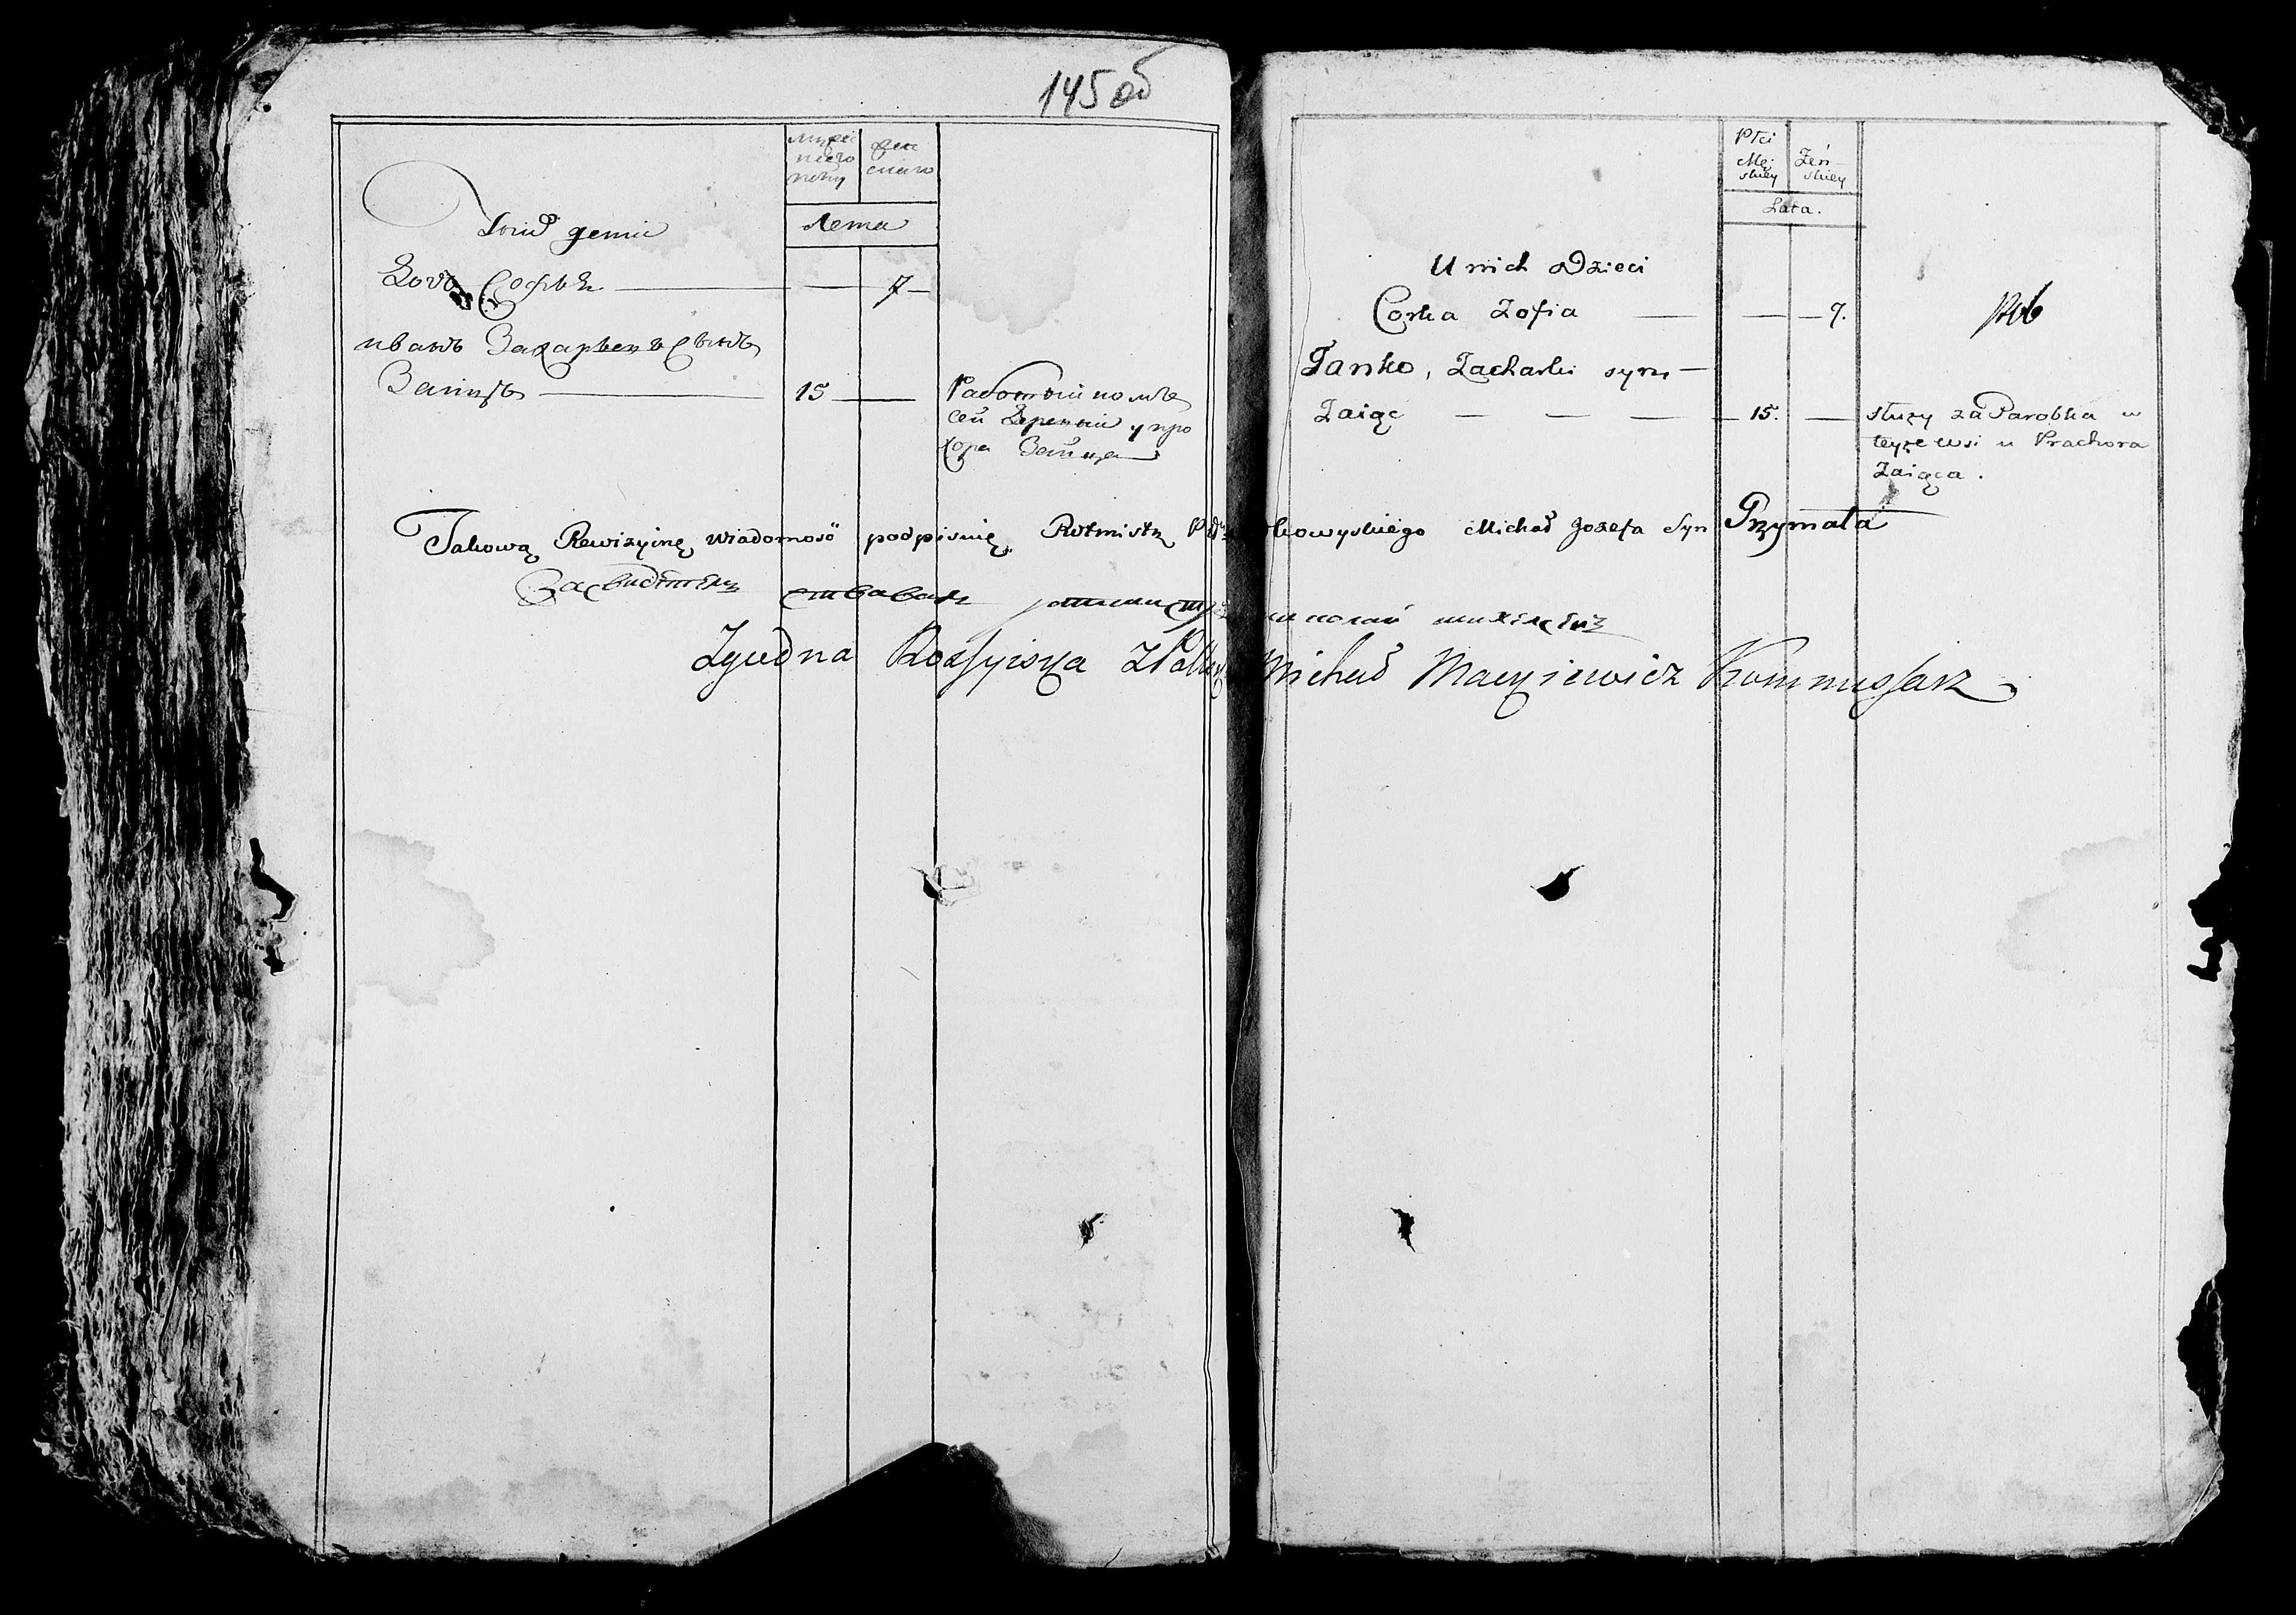 145 об
мужес
каго
полу
жен
скаго
Лета
дети
дочь Софья 7
Иванъ Захарьевъ Сынъ
Заицъ 15
сей деревни у про
хора Зайца
Płci
Mę:
skiey
Żeń-
skiey
Lata.
U nich Dzieci
Corka Zofia 7.
Janko, Zacharki syn
Zaiąc 15.
służy za Parobka w
teyże wsi u Prachora
Zaiąca.
Takową Rewizyiną wiadomość podpisuię Rotmistrz Michał Jozefa Syn Przymała
Zgodna Rossyiska Z Polską Michał Macyiewicz Kommissarz